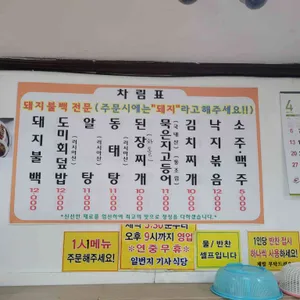 차림표
돼지불백 전문 (주문시에는"돼지"라고해주세요!!)
돼지불백 12000
도미회덮밥 12000
알탕 (러시아산) 11000
동태탕 (러시아산) 11000
된장찌개 10000
묵은지고등어 (국내산)
김치찌개 10000
낙지볶음 12000
소주·맥주 5000
1시메뉴
주문해주세요!
오후 9시까지 영업
※연중무휴※
일번지 기사식당
물 / 반찬
셀프입니다
1인당 반찬 접시
하나씩 사용하세요!
4